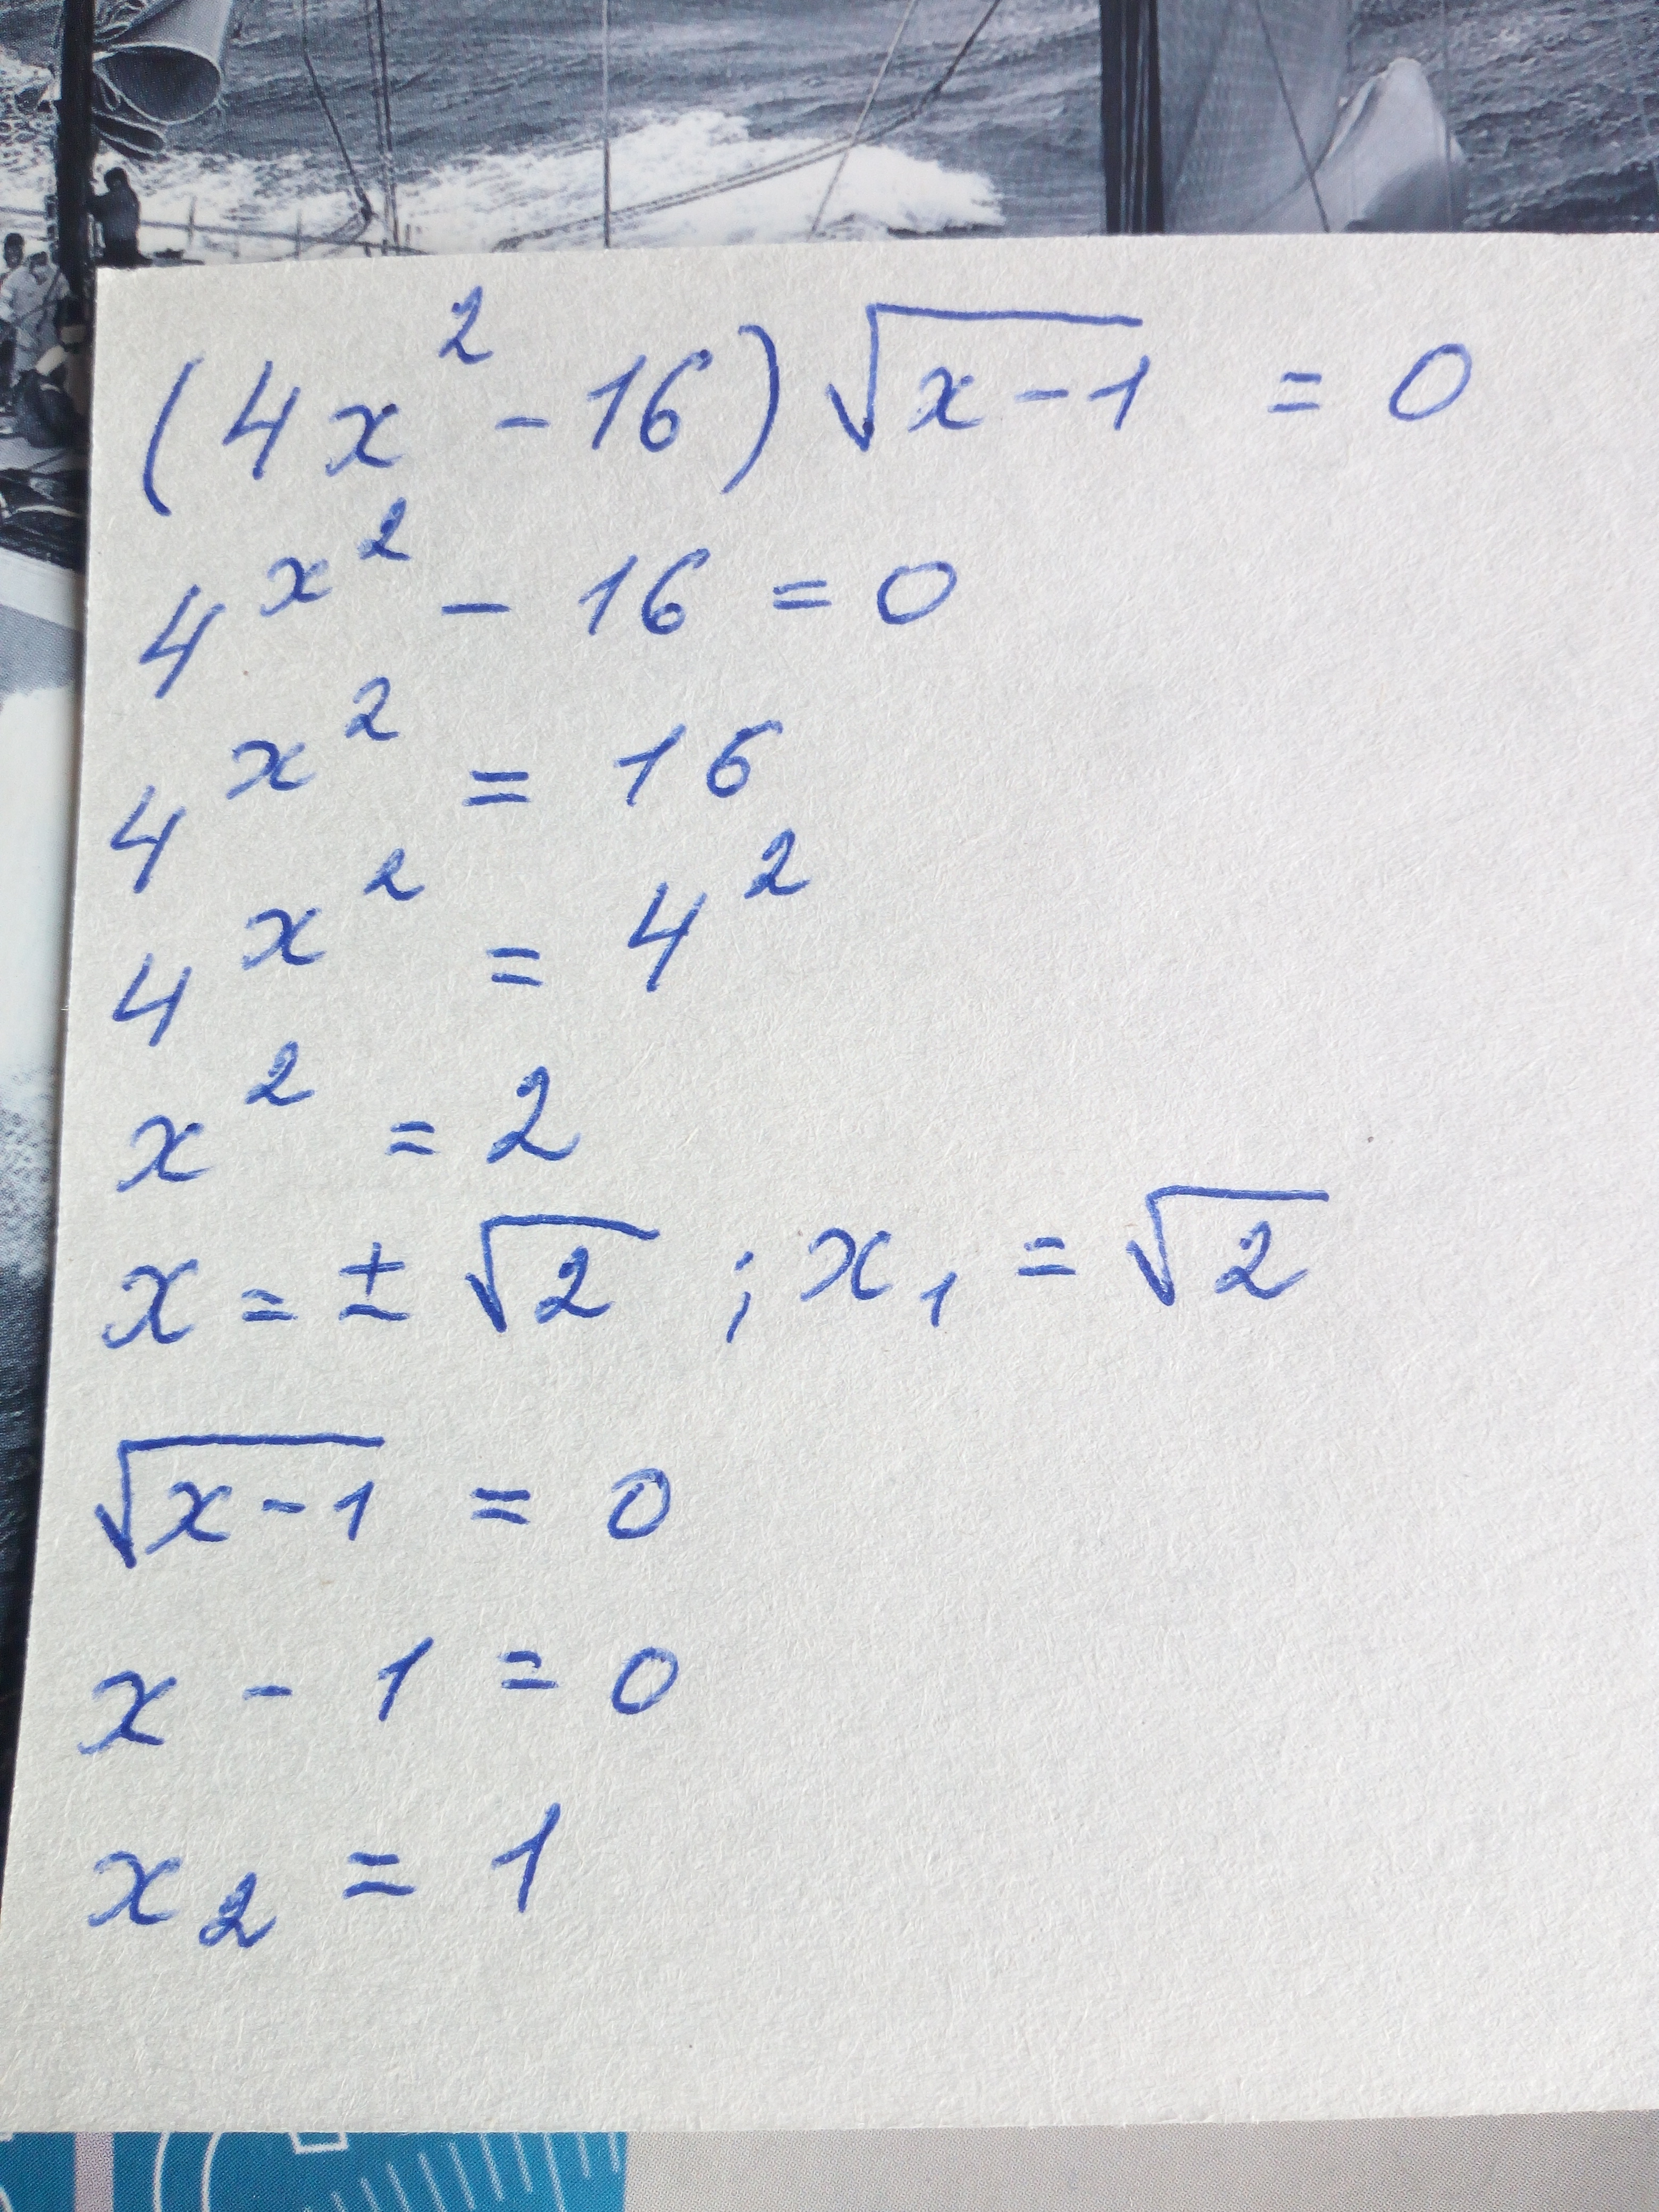 (4x² - 16) √(x - 1) = 0
4^(x²) - 16 = 0
4^(x²) = 16
4^(x²) = 4²
x² = 2
x = ± √2 ; x₁ = √2
√(x - 1) = 0
x - 1 = 0
x₂ = 1